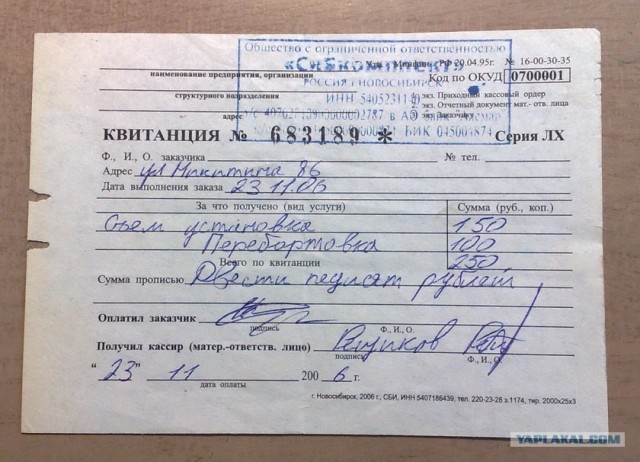 Общество с ограниченной ответственностью
«Сибкомплект»
Утв. Минфин. РФ 20.04.95г. № 16-00-30-35
наименование предприятия, организации
РОССИЯ г НОВОСИБИРСК
Код по ОКУД 0700001
структурного подразделения
ИНН
1 экз. Приходный кассовый ордер
2 экз. Отчетный документ мат.- отв. лица
адрес
3 экз. Заказчику
БИК 045004874
КВИТАНЦИЯ № 683189 * Серия ЛХ
Ф., И., О. заказчика № тел.
Адрес ул Никитина 86
Дата выполнения заказа 23 11.06
За что получено (вид услуги) Сумма (руб., коп.)
Съем установка 150
Перебортовка 100
Всего по квитанции 250
Сумма прописью Двести педисят рублей
Оплатил заказчик
подпись Ф., И., О.
Получил кассир (матер.-ответств. лицо)
подпись Ф., И., О.
"23" 11 200 6 г.
дата оплаты
г. Новосибирск, 2006 г., СБИ, ИНН 5407186439, тел. 220-23-26 з.1174, тир. 2000х25х3
YAPLAKAL.COM